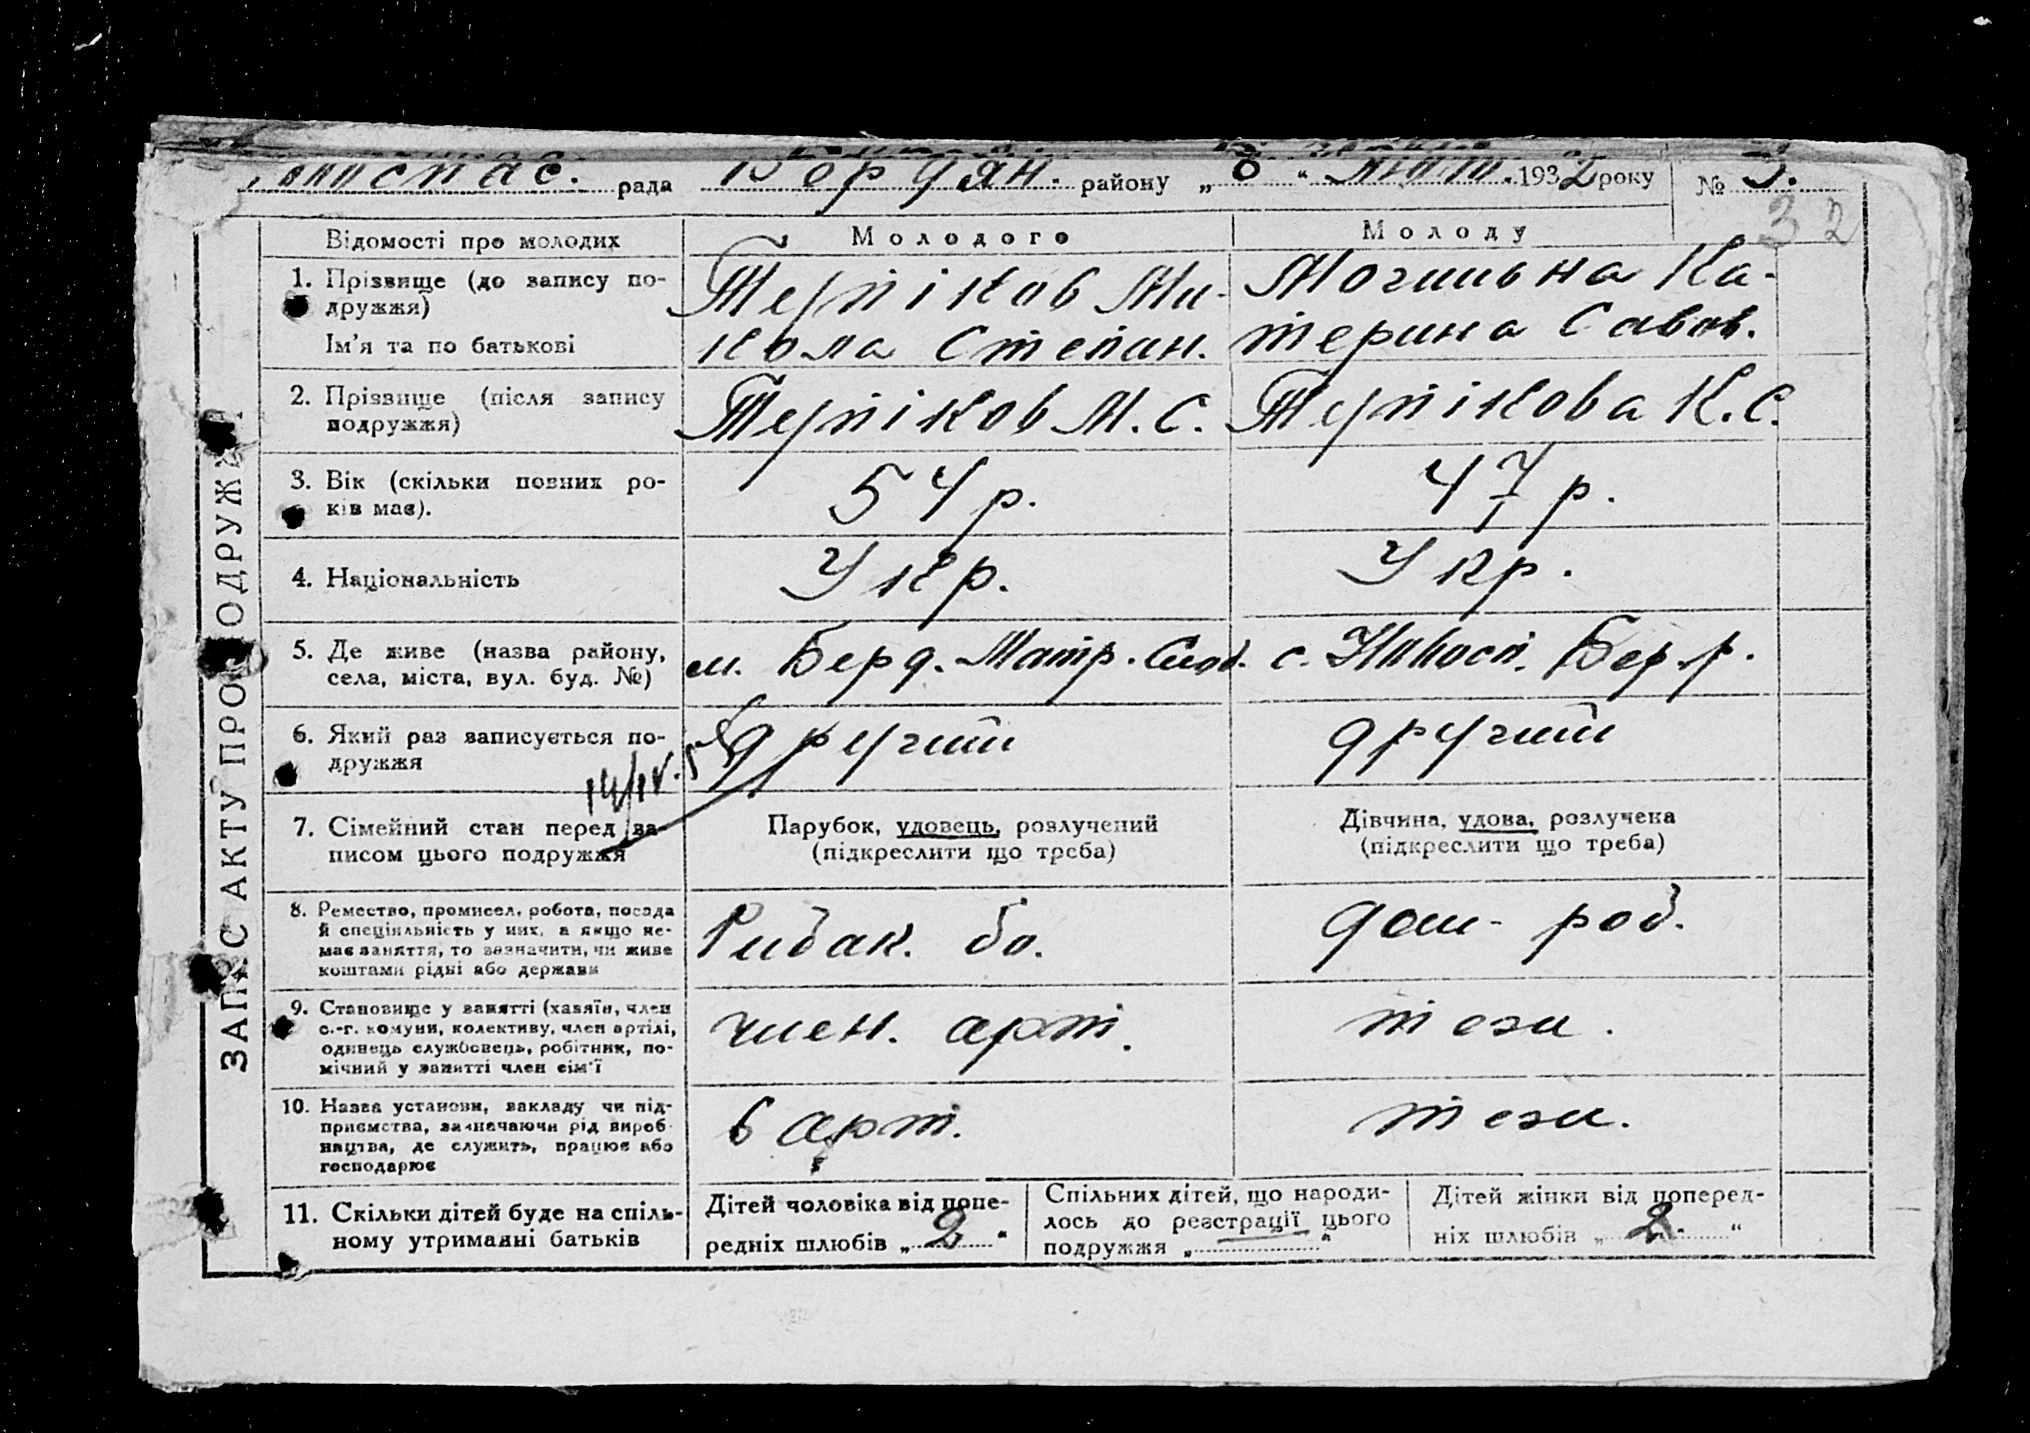 Новоспас. рада Бердян. району „8“ лют. 1932 року № 3.
32
ЗАПИС АКТУ ПРО ПОДРУЖЖЯ
Відомості про молодих Молодого Молоду
1. Прізвище (до запису подружжя)
Ім'я та по батькові
Терпіков Ми-
кола Степан.
Могильна Ка-
терина Савов.
2. Прізвище (після запису
подружжя)
Терпіков М. С. Терпікова К. С.
3. Вік (скільки повних ро-
ків має).
54 р. 47 р.
4. Національність Укр. Укр.
5. Де живе (назва району,
села, міста, вул. буд. №)
м. Берд. Матр. Слоб. с. Новосп. Бер. р.
6. Який раз записується по-
дружжя
другий другий
7. Сімейний стан перед за-
писом цього подружжя
Парубок, удовець, розлучений
(підкреслити що треба)
Дівчина, удова, розлучена
(підкреслити що треба)
8. Ремество, промисел, робота, посада
й спеціяльність у них, а якщо не-
має заняття, то зазначити, чи живе
коштами рідні або держави
Рибак. дом. роб.
9. Становище у занятті (хазяїн, член
с.-г. комуни, колективу, член артілі,
одинець службовець, робітник, по-
мічний у занятті член сім'ї
член. арт. тези.
10. Назва установи, закладу чи під-
приємства, зазначаючи рід вироб-
ництва, де служить, працює або
господарює
в арт. тези.
11. Скільки дітей буде на спіль-
ному утриманні батьків
Дітей чоловіка від попе-
редніх шлюбів „2“
Спільних дітей, що народи-
лось до реєстрації цього
подружжя „ “
Дітей жінки від поперед-
ніх шлюбів „2“